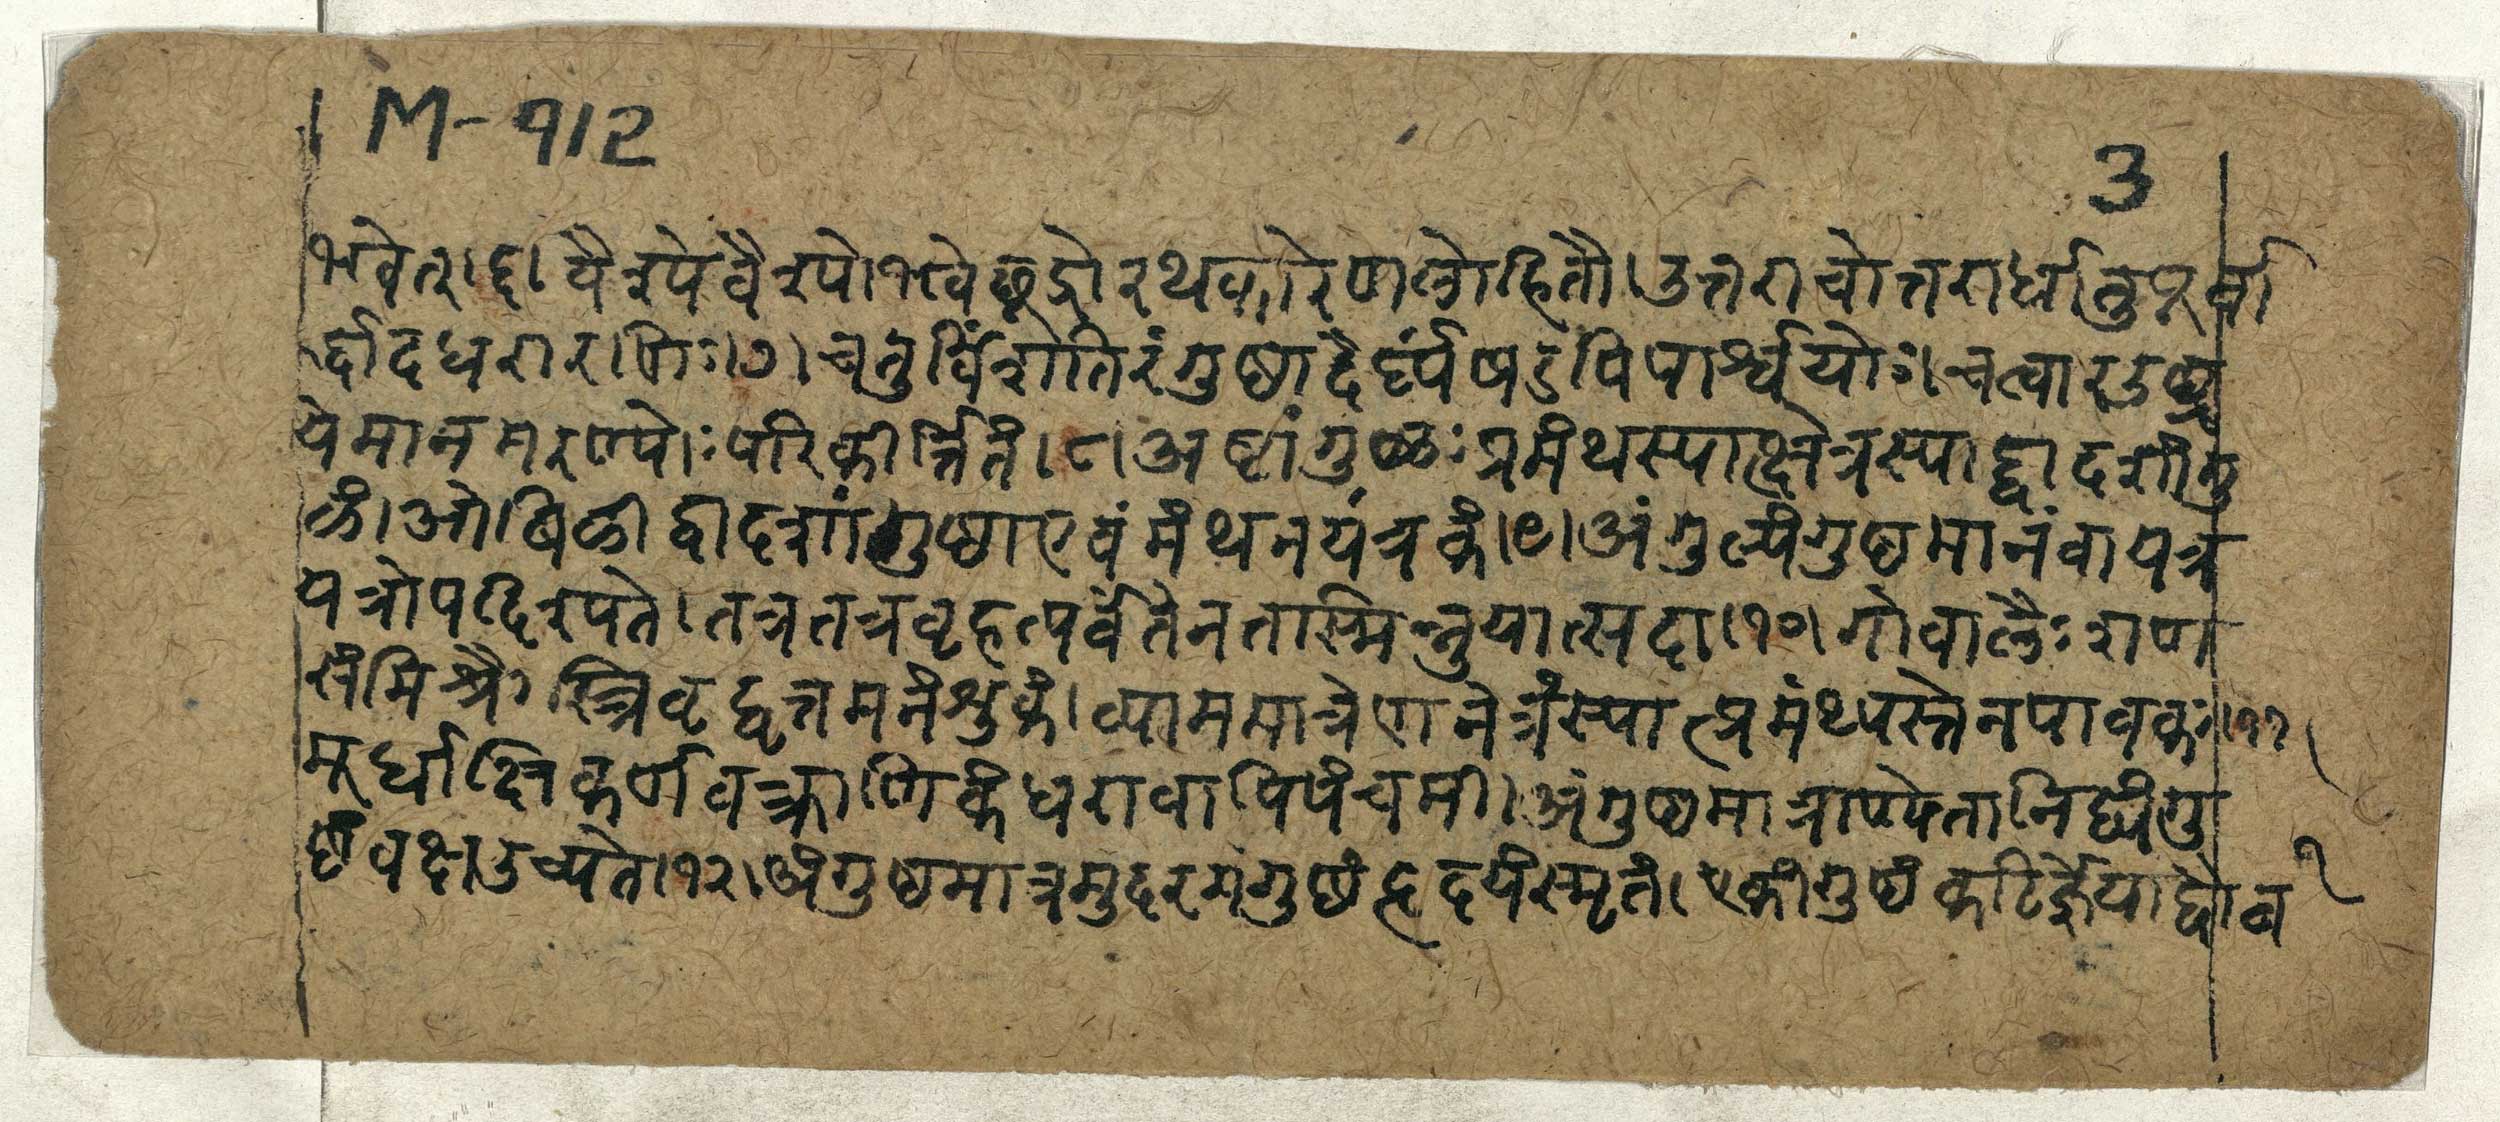 M-912
3
भवेत्।६।वैश्येवैश्योभवेछूद्रोरथकारेणलोहितौ।उत्तराचोत्तरार्धात्तुपूर्वा
र्द्धादधरारणिः।७।चतुर्विंशतिरंगुष्ठादैर्घ्यंषडपिपार्श्वयोः।चत्वारउछ्र
येमानमरण्योःपरिकीर्त्तितं।८।अष्टांगुळःप्रमंथस्याक्षेत्रस्याद्द्वादशांगु
ळं।ओविळीद्वादशांगुष्ठाएवंमंथनयंत्रकं।९।अंगुल्यंगुष्ठमानंवायत्र
यत्रोपदिश्यते।तत्रतत्रबृहत्पर्वतेनतास्मिन्नुयात्सदा।१०।गोवालैःशण
संमिश्रैस्त्रिवृद्वृत्तमनंशुकं।व्याममात्रेणनेत्रंस्यात्प्रमंथ्यस्तेनपावकः।११।
मूर्धाक्षिकर्णवक्त्राणिकंधरावापिपंचमी।अंगुष्ठमात्राण्येतानिद्व्यंगु
ष्ठंवक्षउच्यते।१२।अंगुष्ठमात्रमुदरमंगुष्ठंहृदयंस्मृतं।एकांगुष्ठंकटिर्ज्ञेयाद्वौब